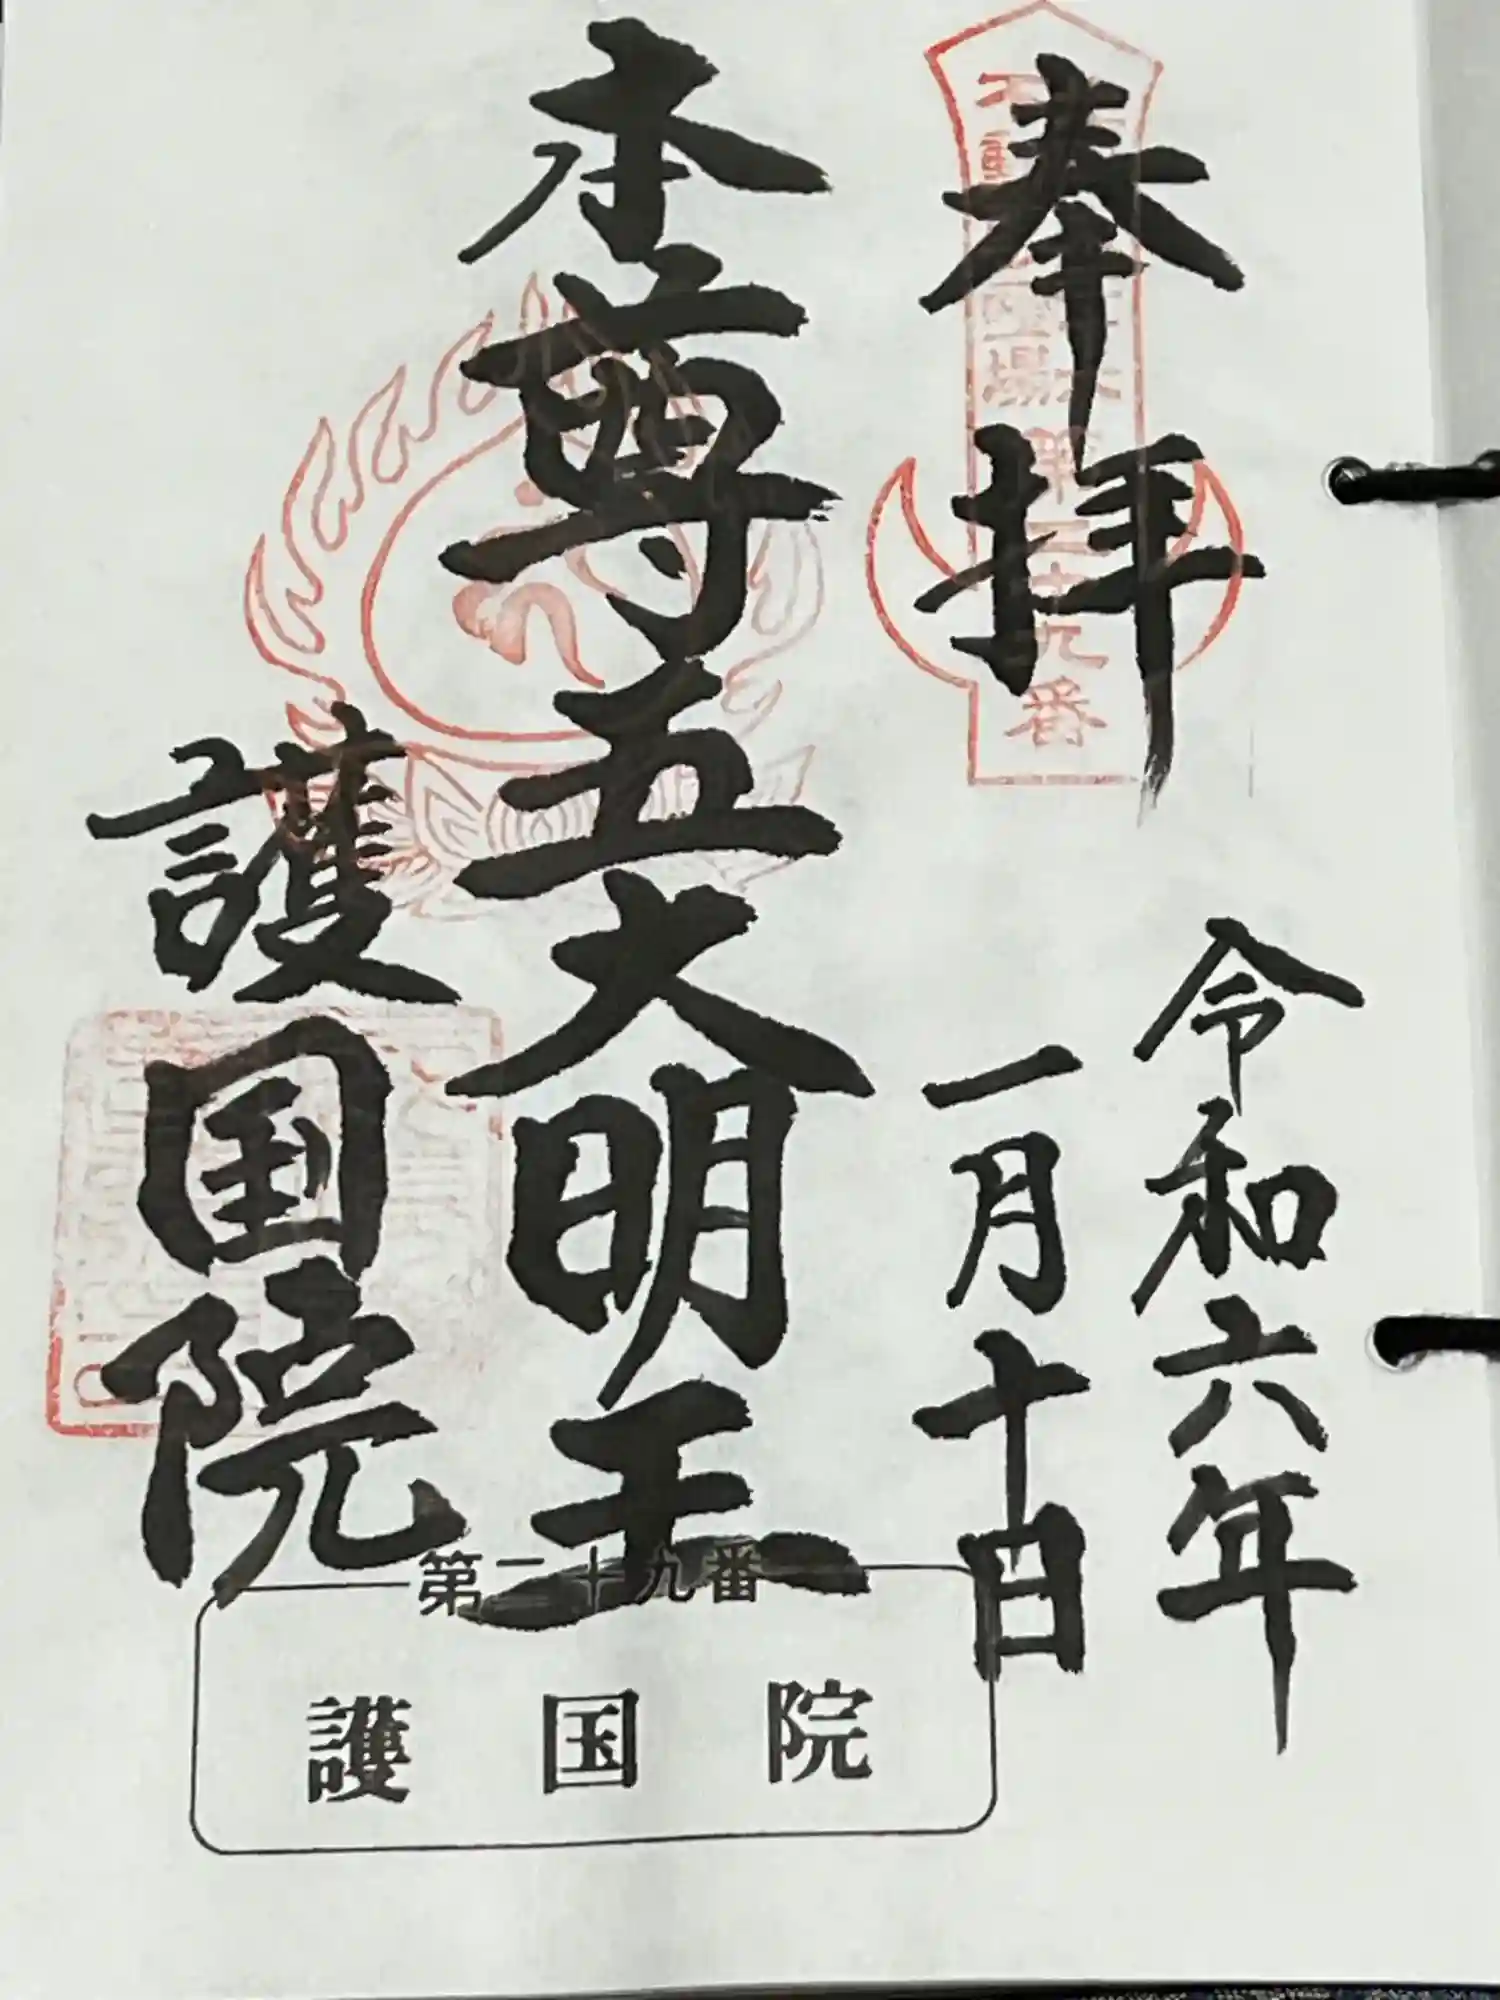 奉拝
令和六年
一月十日
本尊五大明王
護国院
第二十九番
護国院
第二十九番